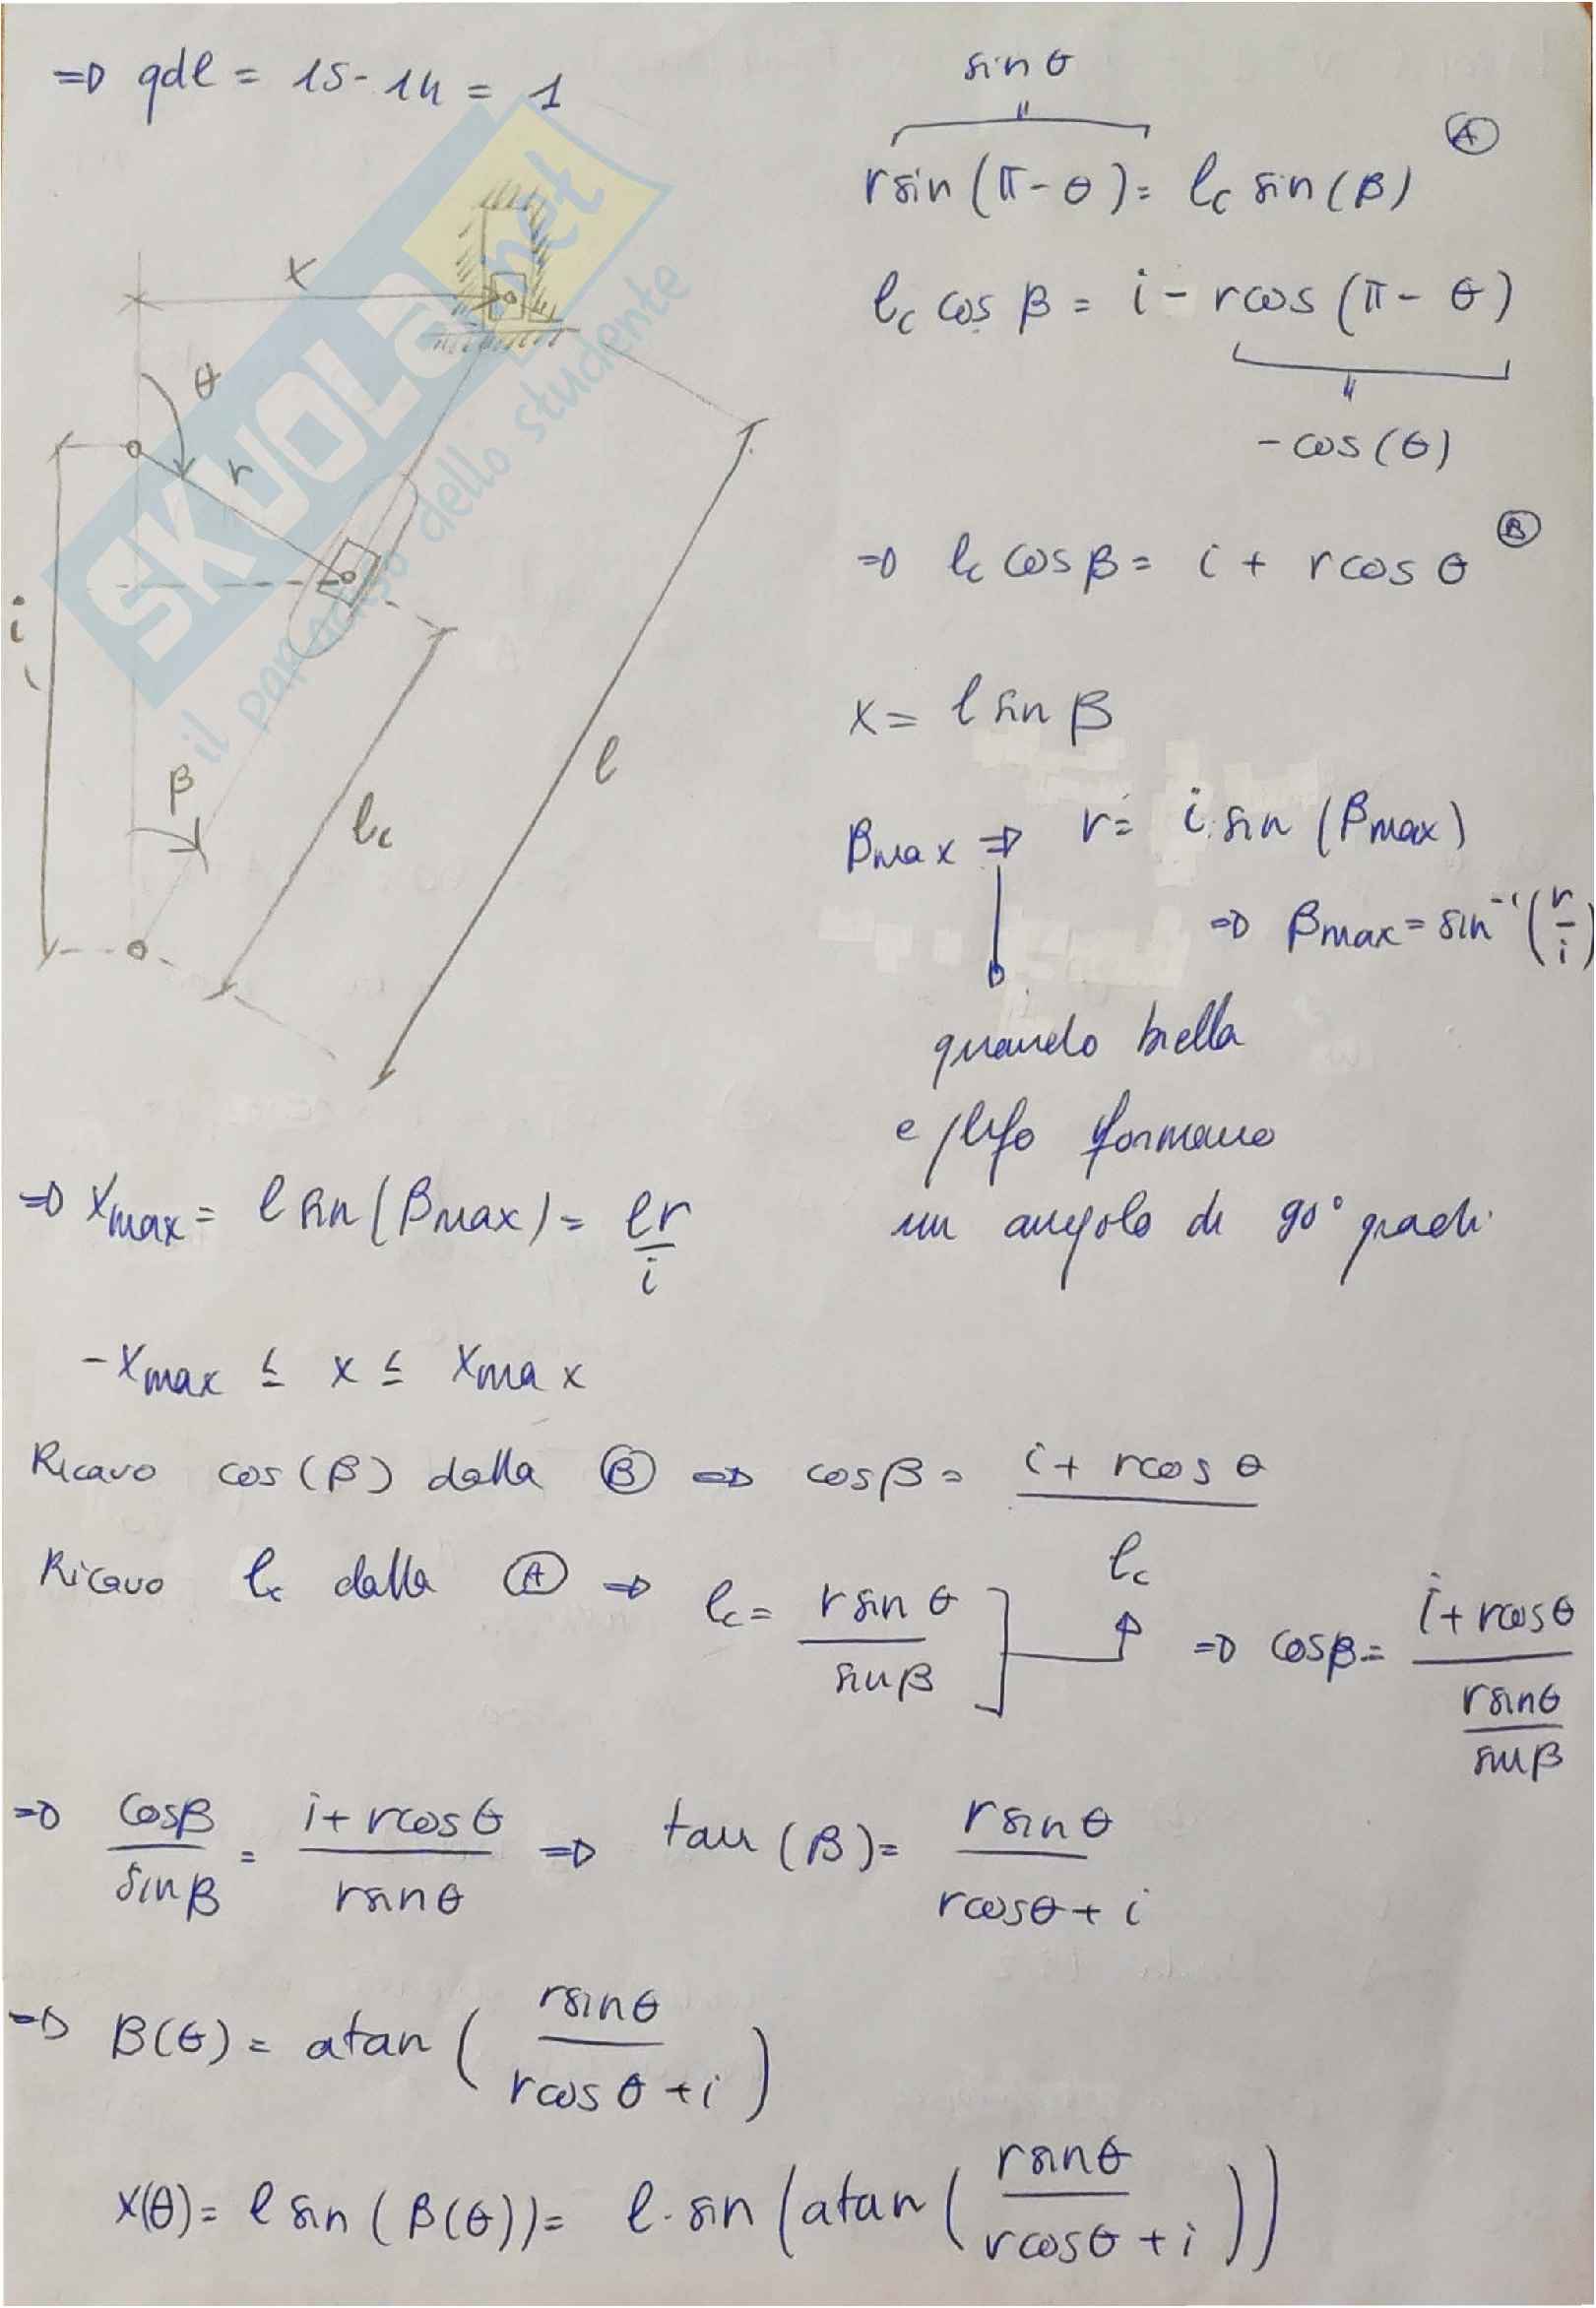 => gdl = 15 - 14 = 1
sin θ
r sin (π - θ) = lc sin (β) Ⓐ
lc cos β = i - r cos (π - θ)
- cos (θ)
=> lc cos β = i + r cos θ Ⓑ
x
θ
r
i
β
lc
l
x = l sin β
βmax => r = i sin (βmax)
=> βmax = sin⁻¹ (r/i)
quando biella
e glifo formano
un angolo di 90° gradi
=> xmax = l sin (βmax) = lr/i
- xmax ≤ x ≤ xmax
Ricavo cos (β) dalla Ⓑ => cos β = (i + r cos θ)/lc
Ricavo lc dalla Ⓐ => lc = r sin θ/sin β => cos β = (i + r cos θ)/(r sin θ/sin β)
=> cos β/sin β = (i + r cos θ)/(r sin θ) => tan (β) = r sin θ/(r cos θ + i)
=> β(θ) = atan (r sin θ/(r cos θ + i))
x(θ) = l sin (β(θ)) = l · sin (atan (r sin θ/(r cos θ + i)))
SKUOLA.net
il paradiso dello studente